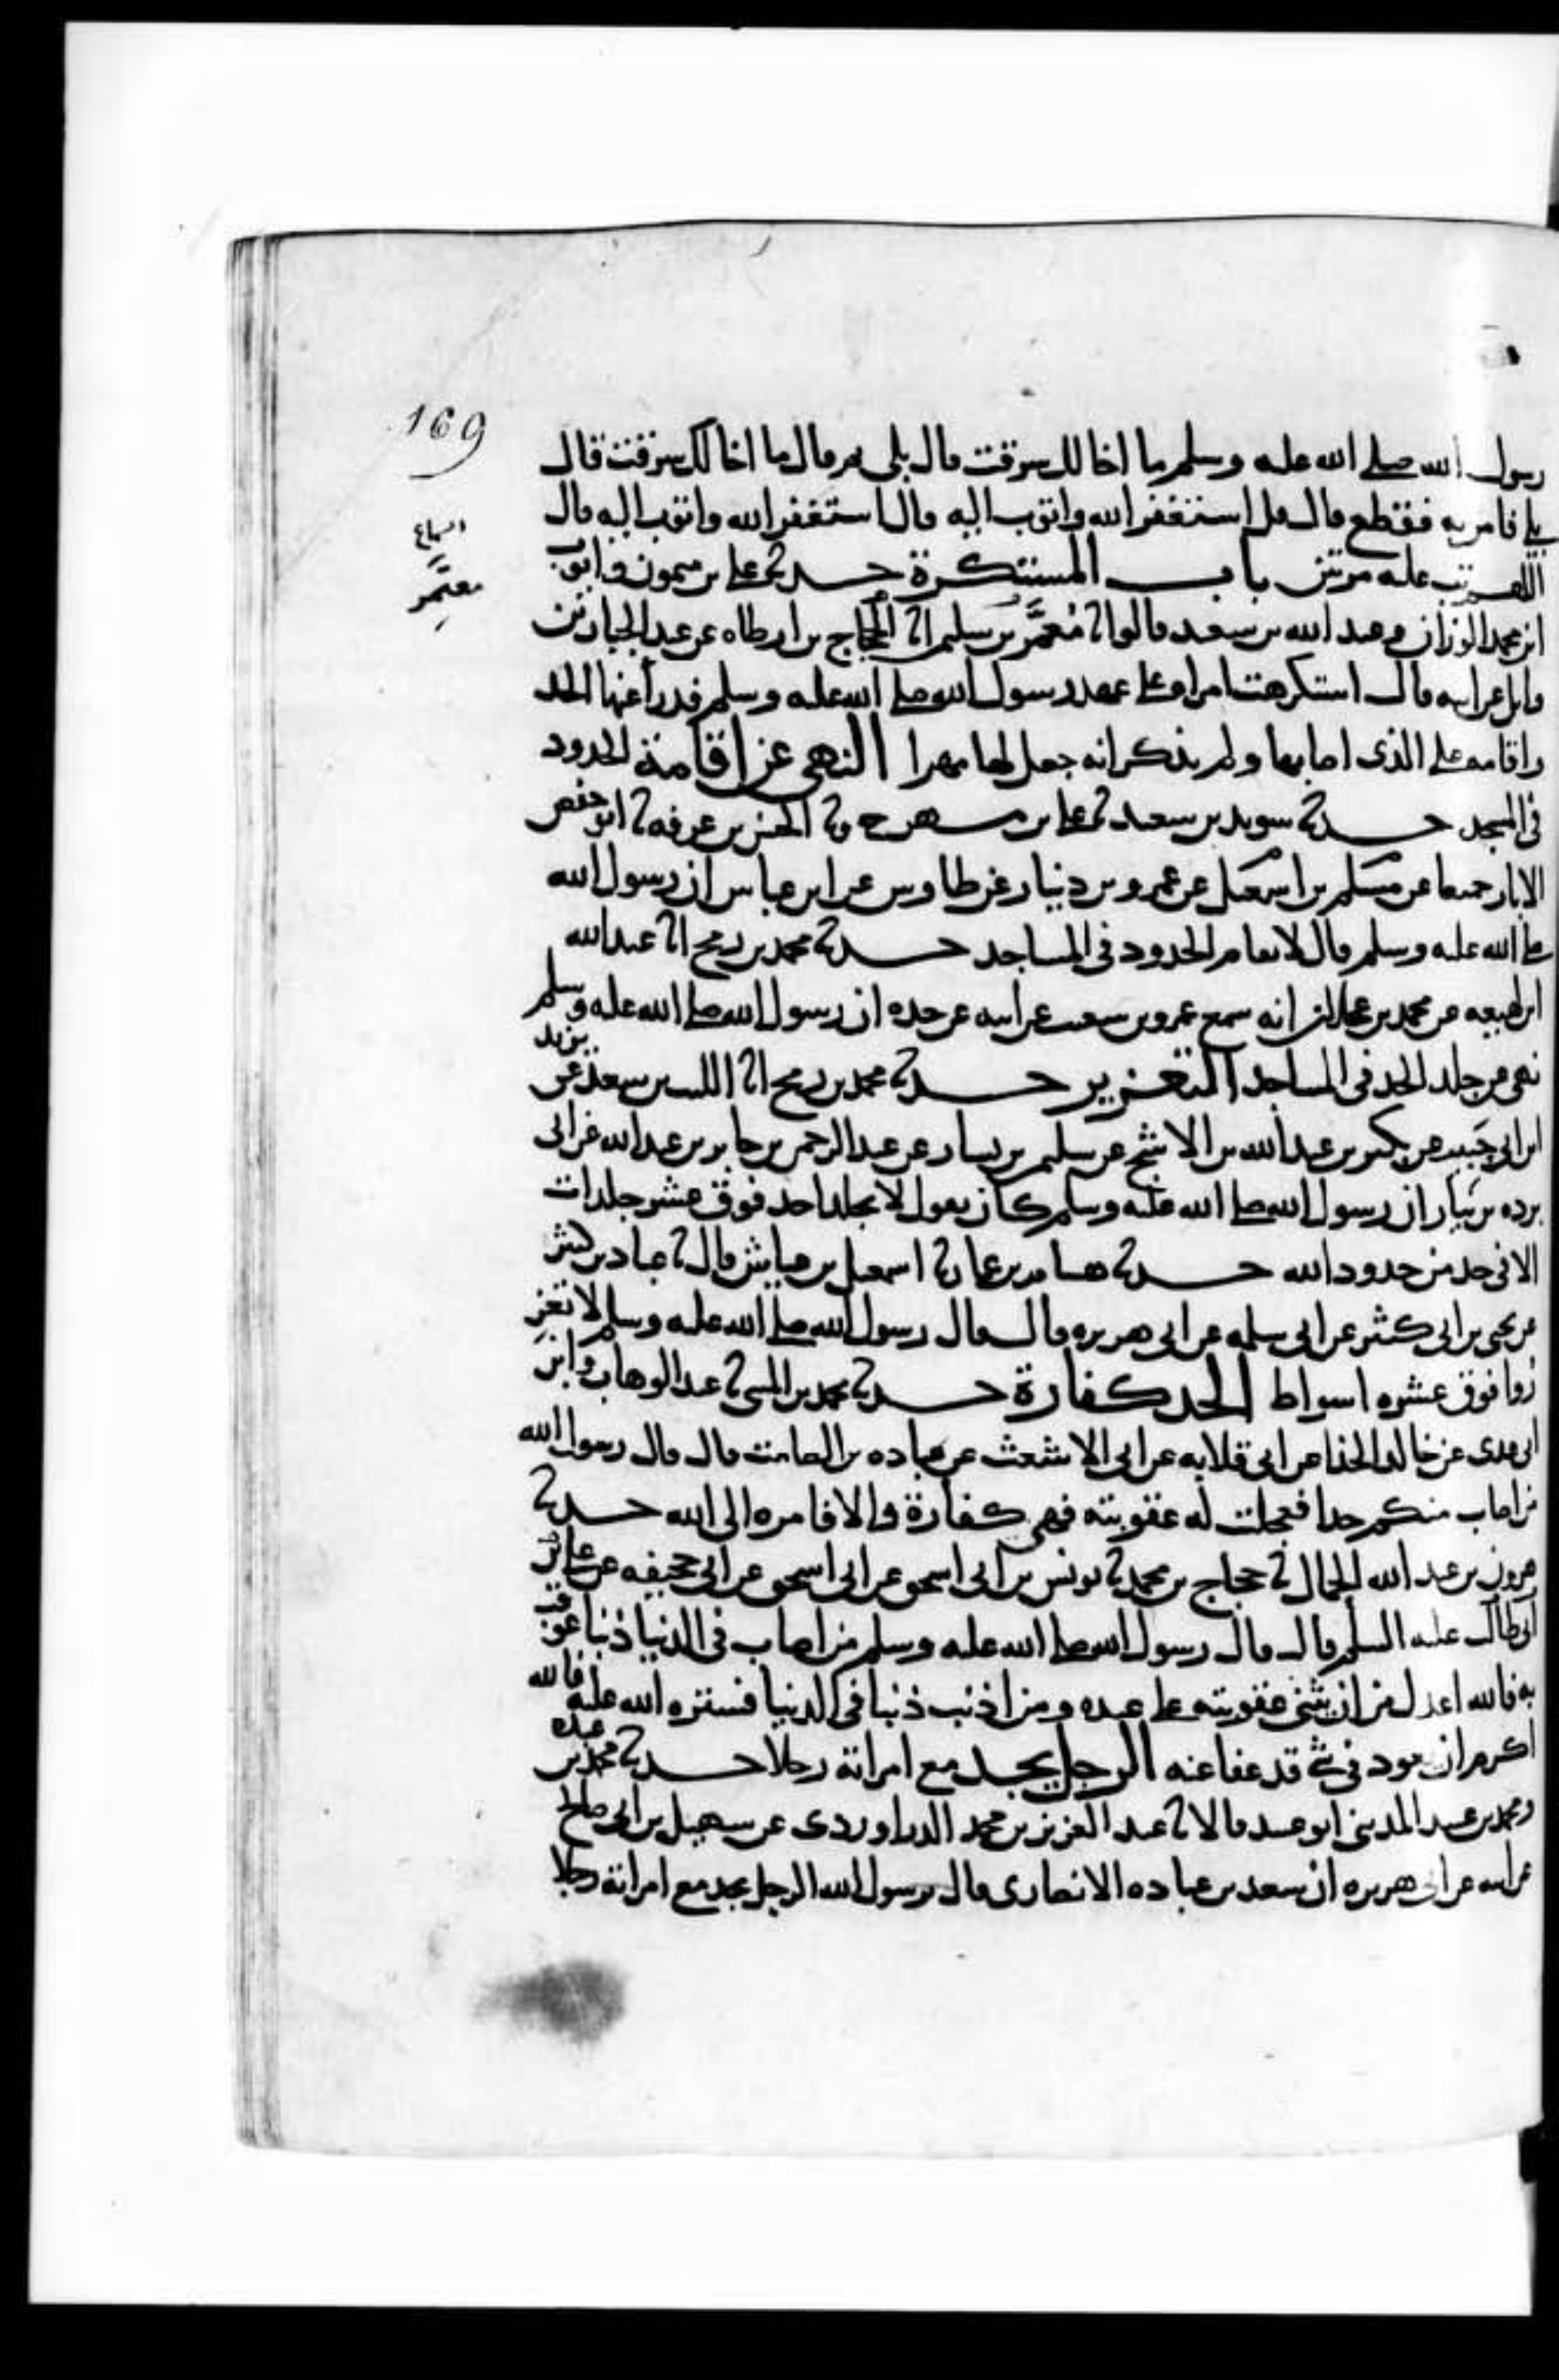 169
رسول الله صلى الله عليه وسلم ما اخالك سرقت قال بلى ثم قال ما اخالك سرقت قال
بلى فامر به فقطع قال قل استغفر الله واتوب اليه قال استغفر الله واتوب اليه قال
اللهم تب عليه مرتين باب المستكرهة حدثنا علي بن ميمون وايوب
السماع
معتمر
ابن محمد الوزان وعبد الله بن سعيد قالوا نا معمر بن سليم انا الحجاج بن ارطاه عن عبد الجبار بن
وايل عن ابيه قال استكرهت امراه على عهد رسول الله صلى الله عليه وسلم فدرأ عنها الحد
واقامه على الذي اصابها ولم يذكر انه جعل لها مهرا النهي عن اقامة الحدود
في المسجد حدثنا سويد بن سعيد نا علي بن مسهر ح ونا الحسن بن عرفه نا ابو حفص
الابار جميعا عن مسلم بن اسمعيل عن عمرو بن دينار عن طاوس عن ابن عباس ان رسول الله
صلى الله عليه وسلم قال لا تقام الحدود في المساجد حدثنا محمد بن رمح انا عبد الله
ابن لهيعه عن محمد بن عجلان انه سمع عمرو بن سعيب عن ابيه عن جده ان رسول الله صلى الله عليه وسلم
نهى عن جلد الحد في المساجد التعزير حدثنا محمد بن رمح انا الليث بن سعد عن يزيد
ابن ابي حبيب عن بكير بن عبد الله بن الاشج عن سليم بن يسار عن عبد الرحمن بن جابر بن عبد الله عن ابي
برده بن نيار ان رسول الله صلى الله عليه وسلم كان يقول لا يجلد احد فوق عشر جلدات
الا في حد من حدود الله حدثنا هشام بن عمار نا اسمعيل بن عياش قال نا عباد بن كثير
عن يحيى بن ابي كثير عن ابي سلمه عن ابي هريره قال قال رسول الله صلى الله عليه وسلم لا تعز
زوا فوق عشره اسواط الحد كفارة حدثنا محمد بن المثنى نا عبد الوهاب وابن
ابي عدي عن خالد الحذا عن ابي قلابه عن ابي الاشعث عن عباده بن الصامت قال قال رسول الله
من اصاب منكم حدا فعجلت له عقوبته فهي كفارة والا فامره الى الله حدثنا
هرون بن عبد الله الحمال نا حجاج بن محمد نا يونس بن ابي اسحق عن ابي اسحق عن ابي جحيفه عن علي بن
ابي طالب عليه السلم قال قال رسول الله صلى الله عليه وسلم من اصاب في الدنيا ذنبا عوقب
به فالله اعدل من ان يثني عقوبته على عبده ومن اذنب ذنبا في الدنيا فستره الله عليه فالله
اكرم من ان يعود في شي قد عفا عنه الرجل يجد مع امراته رجلا حدثنا محمد بن عبده
ومحمد بن عبيد المديني ابو عبيد قالا نا عبد العزيز بن محمد الدراوردي عن سهيل بن ابي صالح
عن ابيه عن ابي هريره ان سعد بن عباده الانصاري قال يرسول الله الرجل يجد مع امراته رجلا